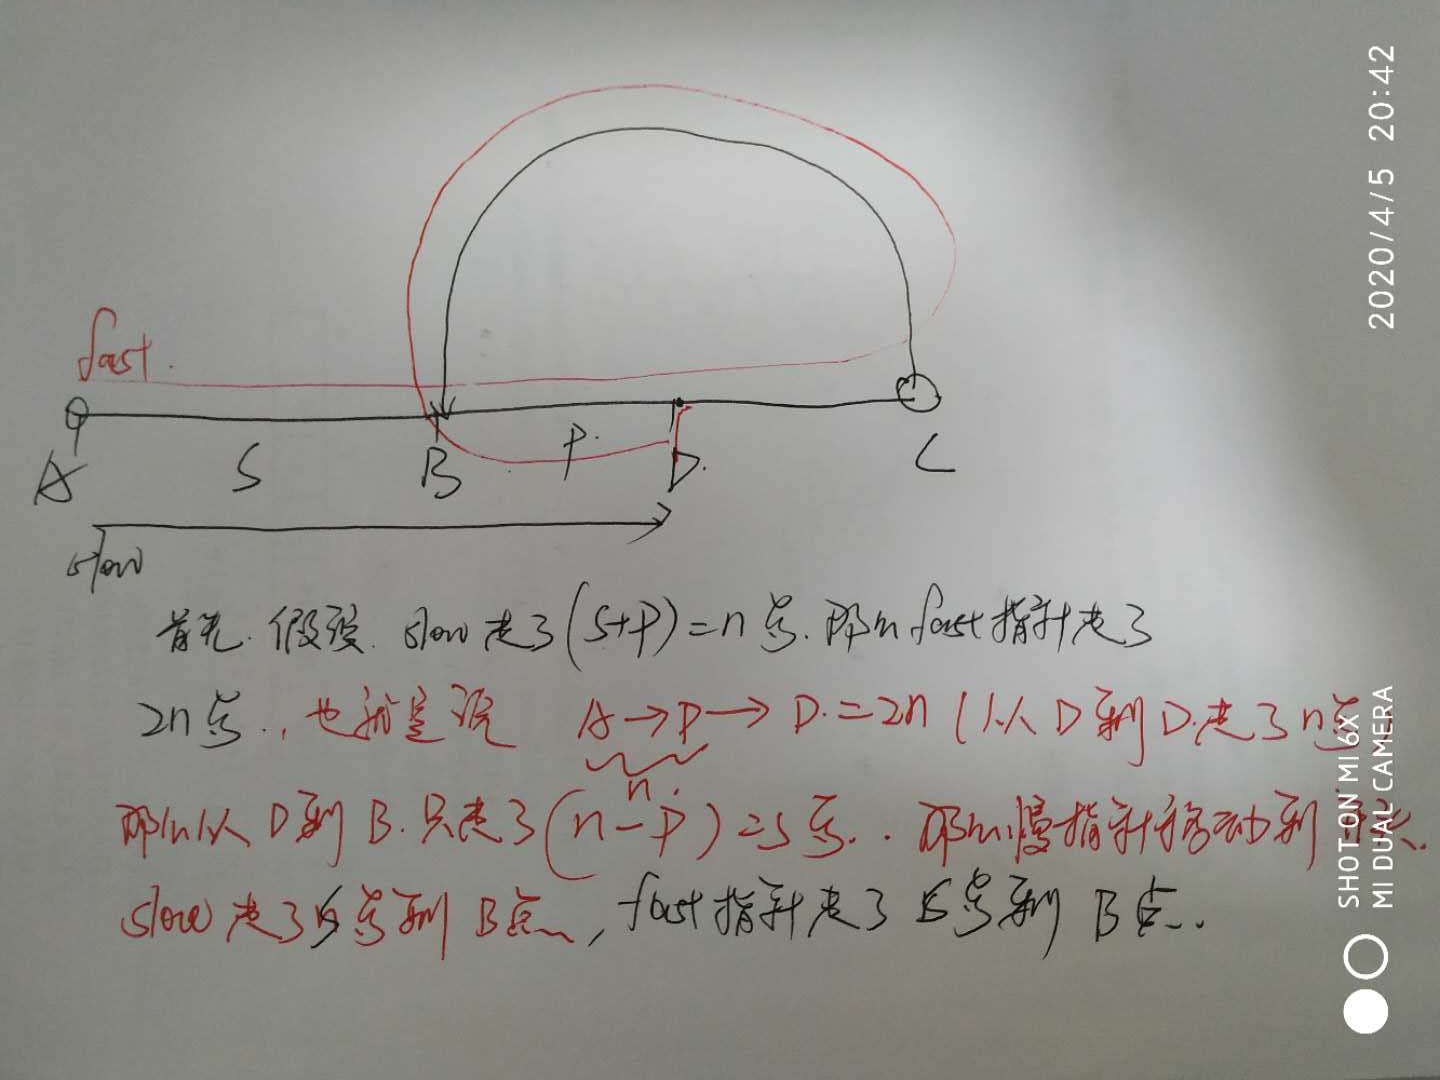 fast.
A S B P. D. C
slow
首先. 假设. slow走了(S+P)=n步. 那么fast指针走了
2n步., 也就是说 A→D→D.=2n (从D到D.走了n步
n.
那么从D到B.只走了(n-P)=S步.. 那么慢指针移动到开头.
slow走了S步到B点, fast指针走了S步到B点..
2020/4/5 20:42
SHOT ON MI 6X
MI DUAL CAMERA